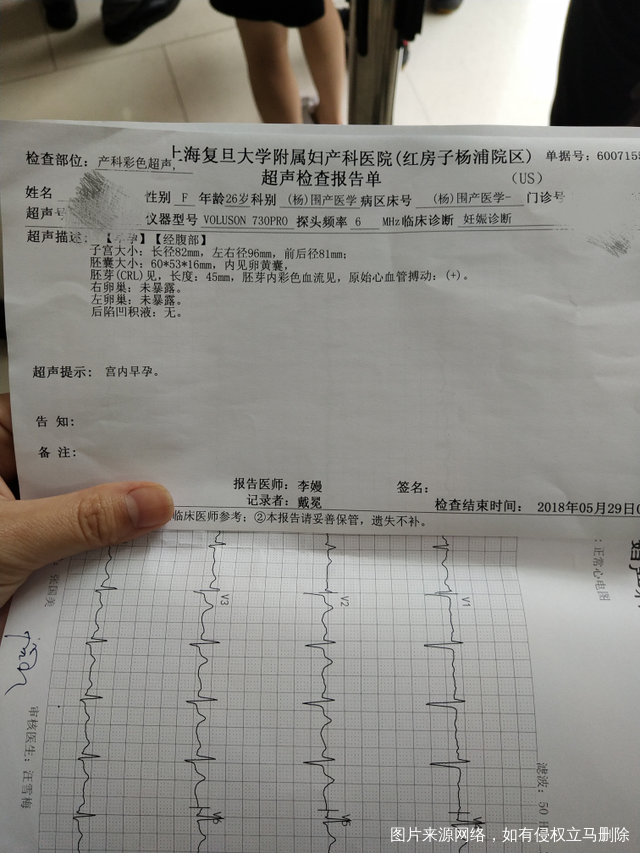 上海复旦大学附属妇产科医院(红房子杨浦院区) 单据号: 6007155
检查部位: 产科彩色超声,
超声检查报告单 (US)
姓名 性别 F 年龄26岁科别 (杨)围产医学 病区床号 (杨)围产医学- 门诊号
超声号 仪器型号 VOLUSON 730PRO 探头频率 6 MHz临床诊断 妊娠诊断
超声描述: 【早孕】【经腹部】
子宫大小: 长径82mm, 左右径96mm, 前后径81mm;
胚囊大小: 60*53*16mm, 内见卵黄囊,
胚芽(CRL)见, 长度: 45mm, 胚芽内彩色血流见, 原始心血管搏动: (+)。
右卵巢: 未暴露。
左卵巢: 未暴露。
后陷凹积液: 无。
超声提示: 宫内早孕。
告 知:
备 注:
报告医师: 李嫚 签名:
记录者: 戴冕
检查结束时间: 2018年05月29日0
临床医师参考; ②本报告请妥善保管, 遗失不补。
: 正常心电图
V3
V2
V1
V6
V5
张国美
审核医生: 汪雪梅
滤波: 50 H
图片来源网络，如有侵权立马删除